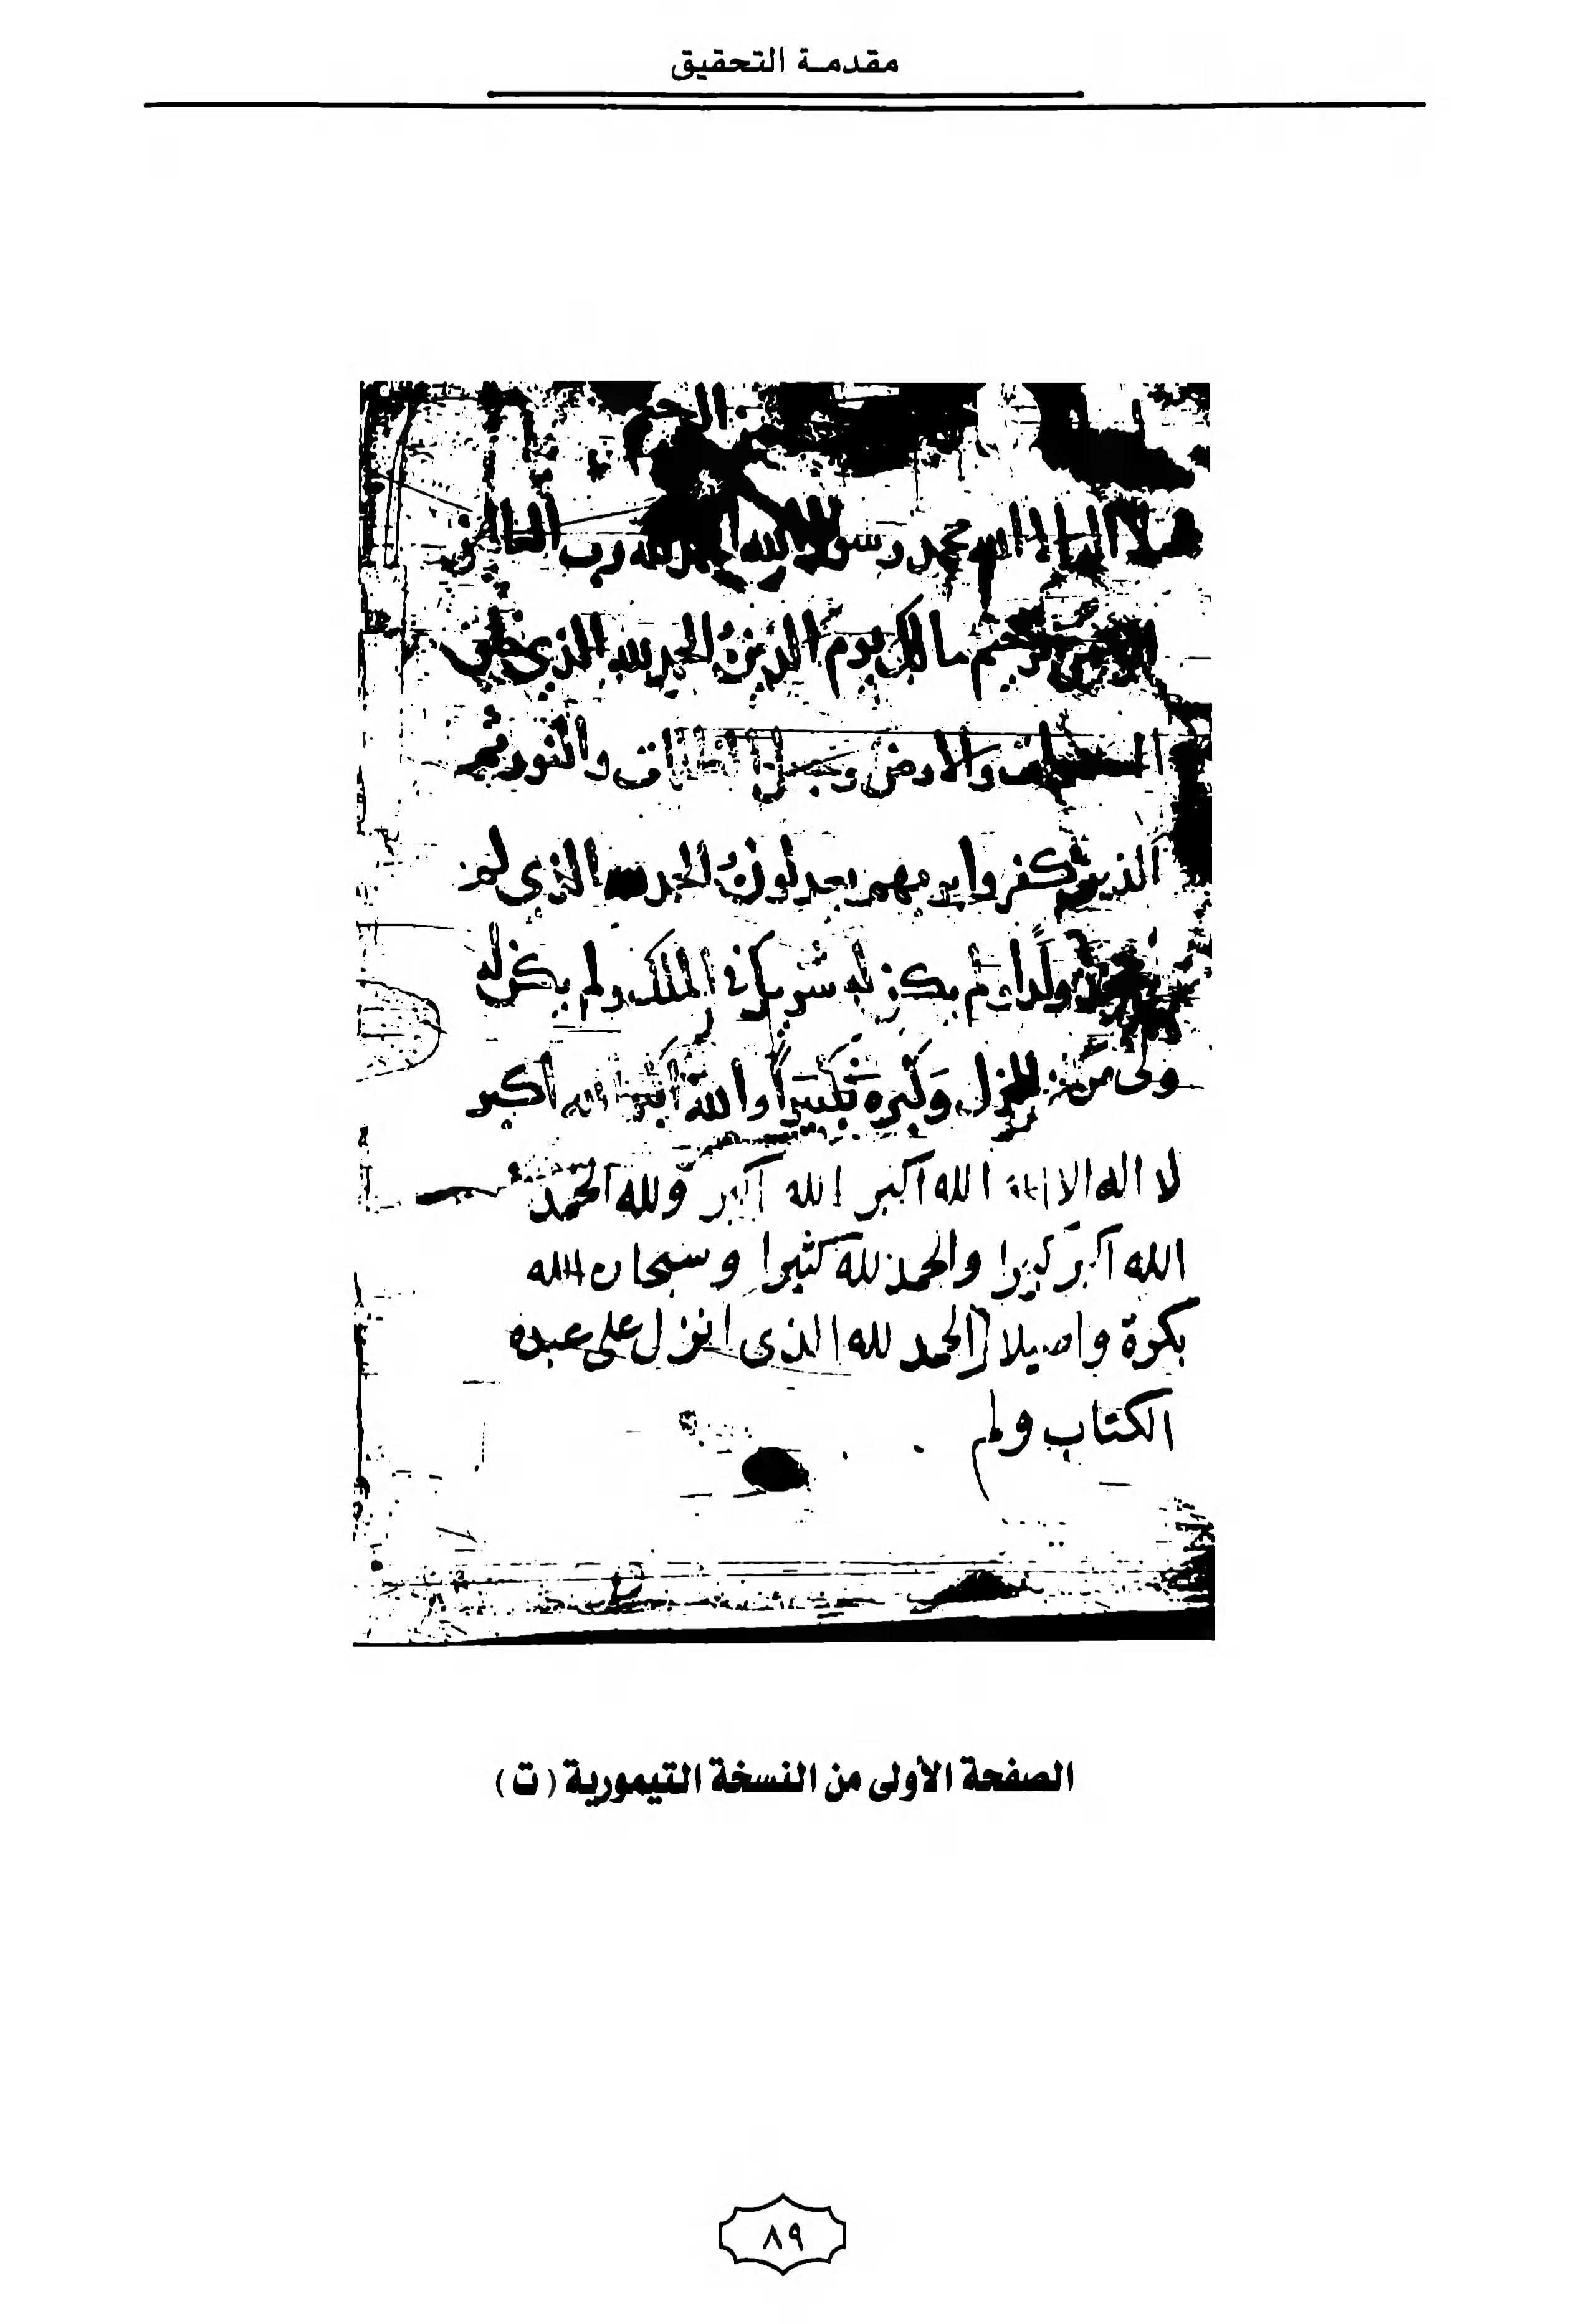 مقدمة التحقيق
لا اله الا الله محمد رسول الله الحمد لله رب العالمين
الرحيم مالك يوم الدين الحمد لله الذي خلق
والارض وجعل الظلمات والنور ثم
الذين كفروا بربهم يعدلون الحمد لله الذي لم
ولدا ولم يكن له شريك في الملك ولم يكن له
ولى من الذل وكبره تكبيرا والله اكبر الله اكبر
لا اله الا الله الله اكبر الله اكبر ولله الحمد
الله اكبر كبيرا والحمد لله كثيرا وسبحان الله
بكرة واصيلا الحمد لله الذى انزل على عبده
الكتاب ولم
الصفحة الأولى من النسخة التيمورية (ت)
٨٩